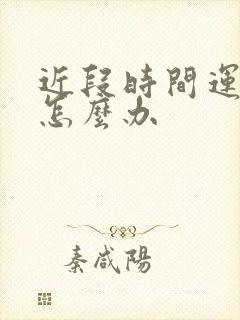 近段時間運
怎麼办
秦咸陽